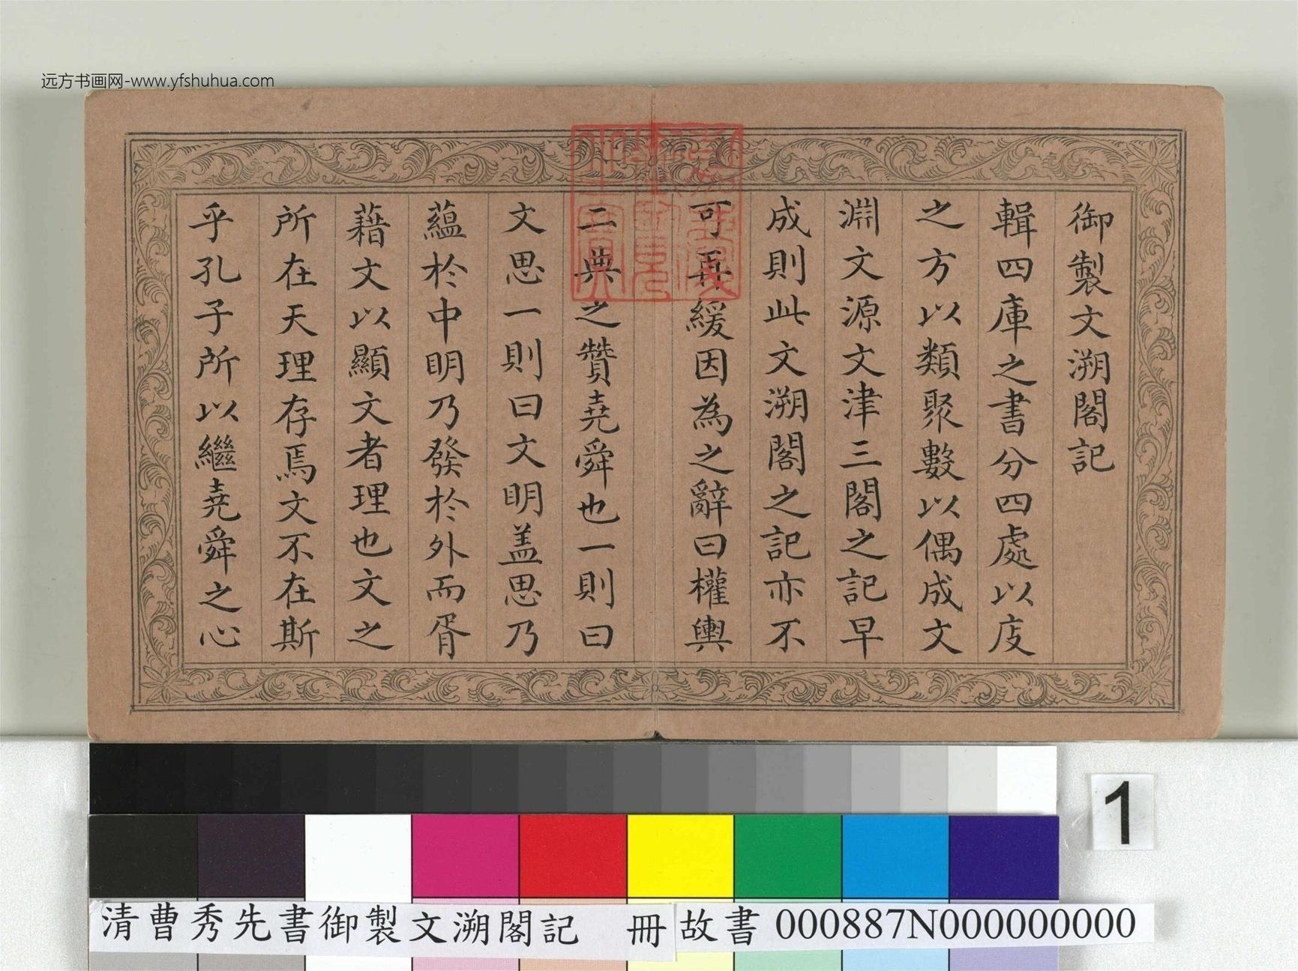 远方书画网-www.yfshuhua.com
御製文溯閣記
輯四庫之書分四處以庋
之方以類聚數以偶成文
淵文源文津三閣之記早
成則此文溯閣之記亦不
可再緩因為之辭曰權輿
二典之贊堯舜也一則曰
文思一則曰文明盖思乃
蘊於中明乃發於外而胥
藉文以顯文者理也文之
所在天理存焉文不在斯
乎孔子所以繼堯舜之心
1
清曹秀先書御製文溯閣記 冊 故書 000887N000000000